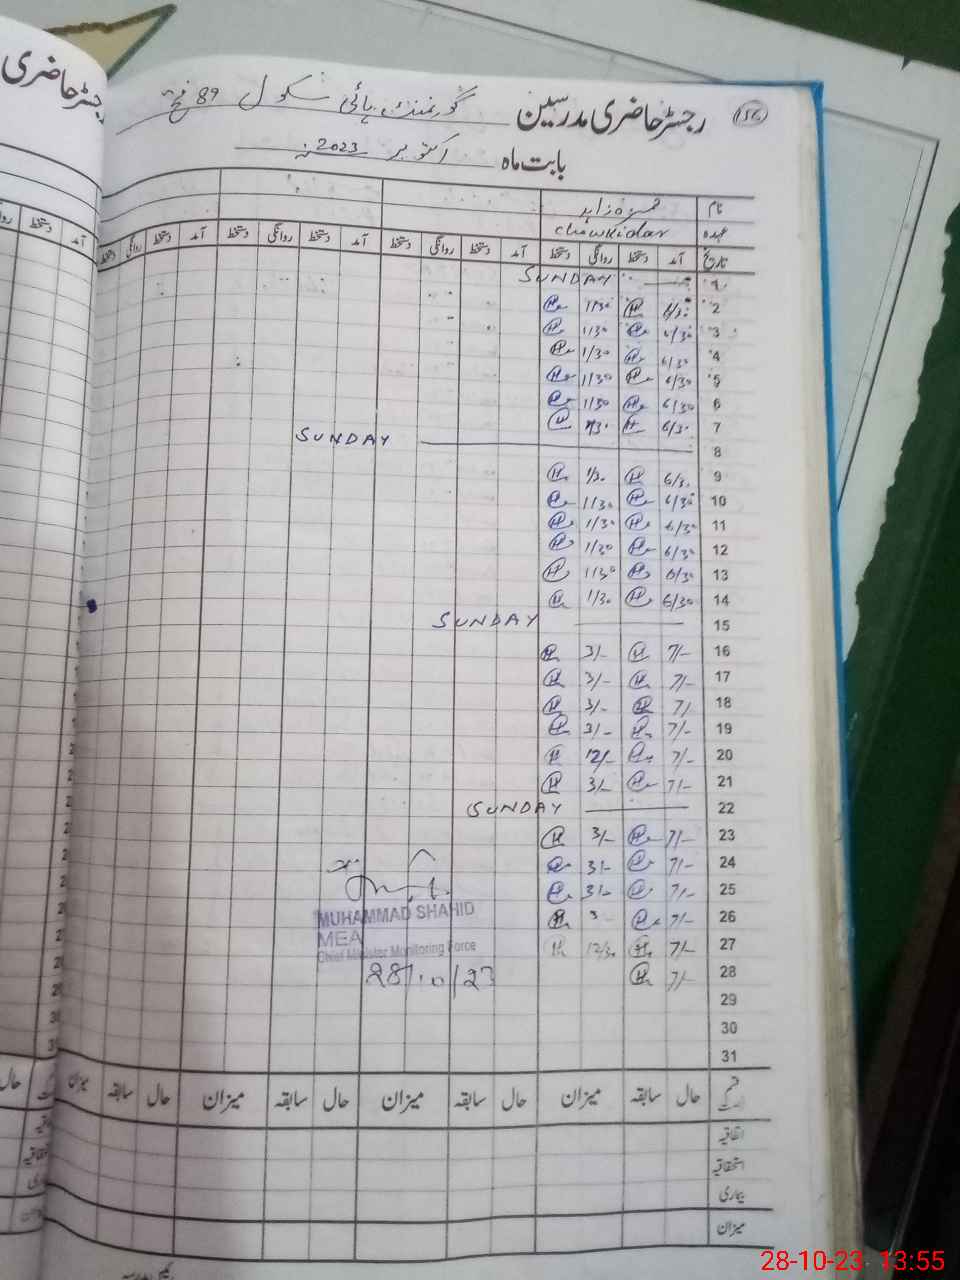 رجسٹر حاضری مدرسین گورنمنٹ ہائی سکول 89 فتح
156
بابت ماہ اکتوبر 2023
نام حمزہ زاہد
عہدہ Chowkidar
تاریخ آمد دستخط روانگی دستخط آمد دستخط روانگی دستخط آمد دستخط روانگی دستخط آمد دستخط روانگی دستخط
1 SUNDAY
2 6/30 1/30
3 6/30 1/30
4 6/30 1/30
5 6/30 1/30
6 6/30 1/30
7 6/30 1/30
8 SUNDAY
9 6/30 1/30
10 6/30 1/30
11 6/30 1/30
12 6/30 1/30
13 6/30 1/30
14 6/30 1/30
15 SUNDAY
16 7/- 3/-
17 7/- 3/-
18 7/ 3/-
19 7/- 3/-
20 7/- 12/-
21 7/- 3/-
22 SUNDAY
23 7/- 3/-
24 7/- 3/-
25 7/- 3/-
26 7/- 3
27 7/- 12/30
28 7/-
29
30
31
MUHAMMAD SHAHID
MEA
Chief Minister Monitoring Force
28/10/23
حال سابقہ میزان حال سابقہ میزان حال سابقہ میزان حال سابقہ میزان
اتفاقیہ
استحقاقیہ
بیماری
میزان
رجسٹر حاضری
28-10-23 13:55